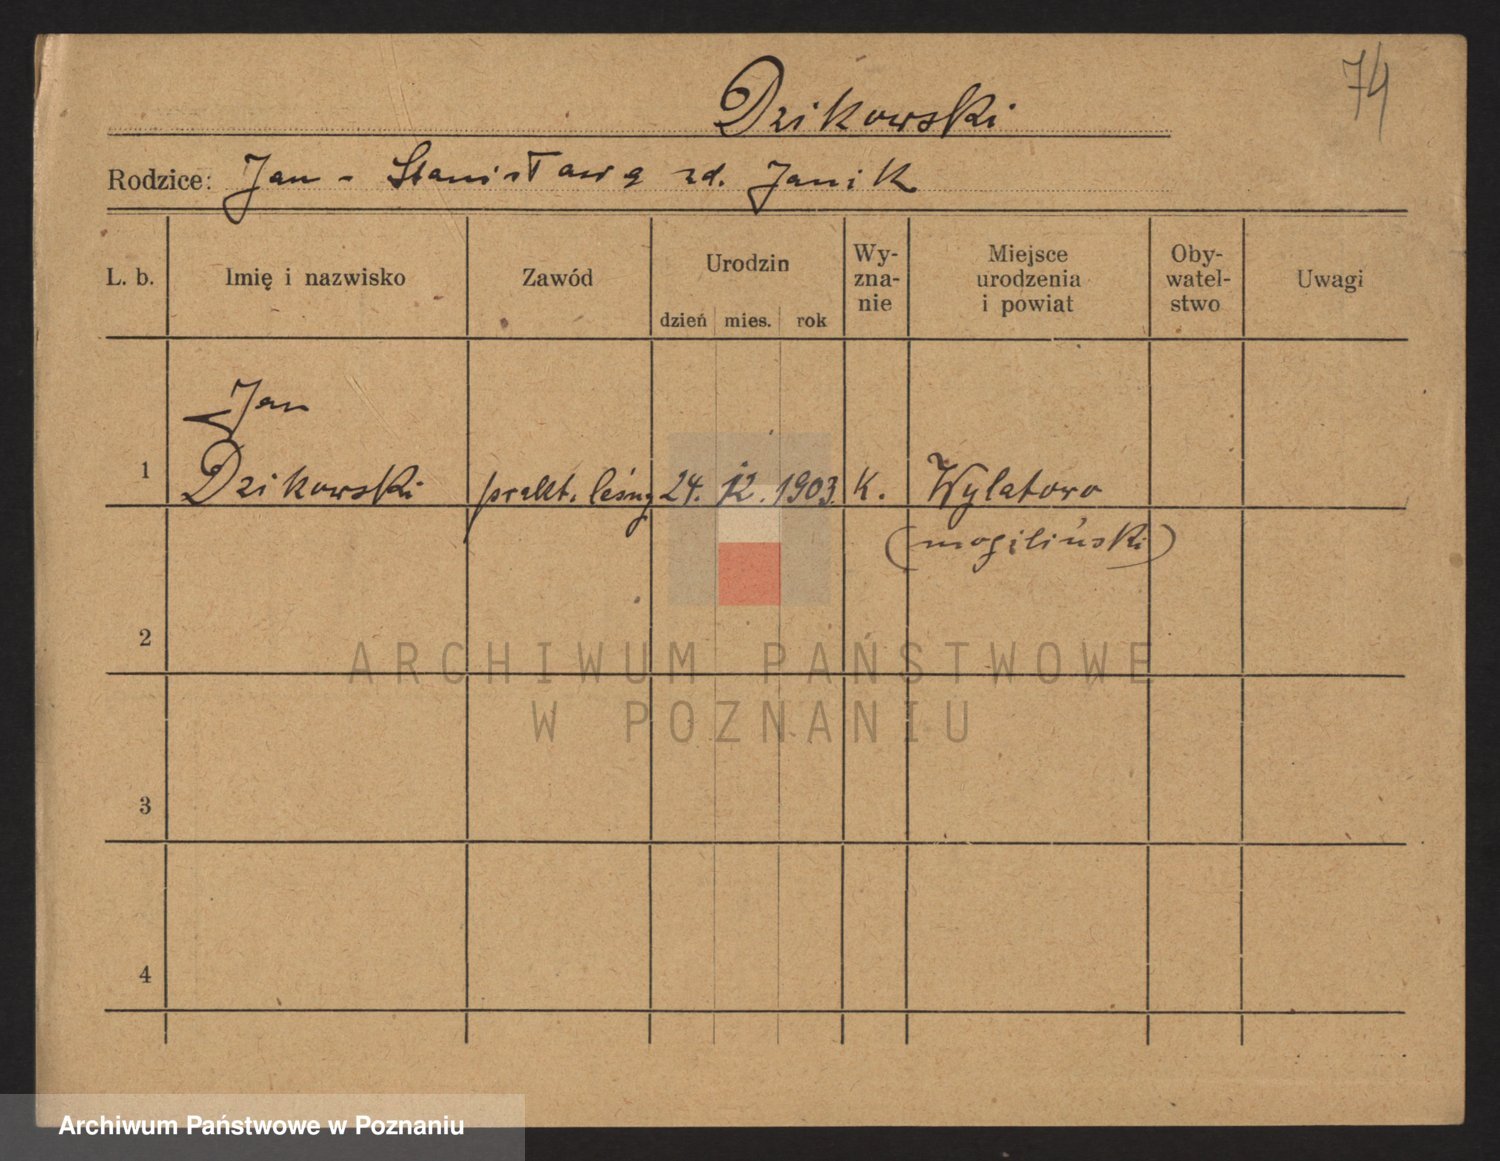 Dzikowski
74
Rodzice: Jan - Stanisława zd. Janik
L. b.
Imię i nazwisko
Zawód
Urodzin
dzień mies. rok
Wy-
zna-
nie
Miejsce
urodzenia
i powiat
Oby-
watel-
stwo
Uwagi
Jan
1 Dzikowski prakt. leśny 24. 12. 1903. K. Wylatowo
(mogiliński)
2
ARCHIWUM PAŃSTWOWE
W POZNANIU
3
4
Archiwum Państwowe w Poznaniu